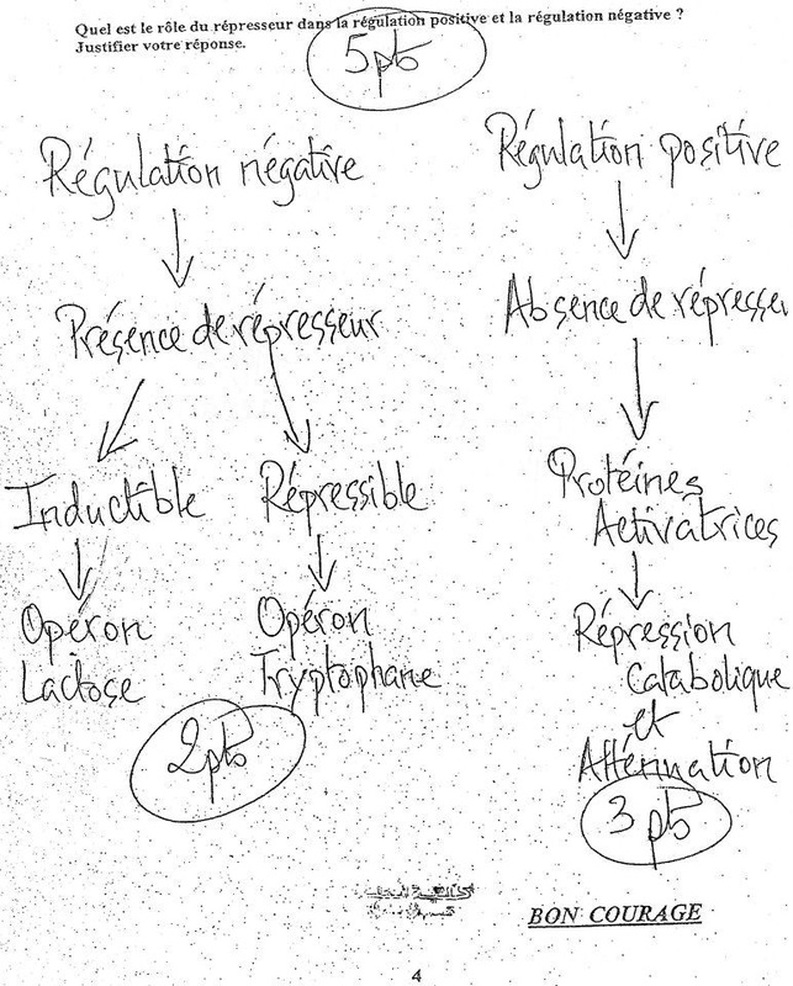 Quel est le rôle du répresseur dans la régulation positive et la régulation négative ?
Justifier votre réponse.
5pts
Régulation négative
Présence de répresseur
Inductible
Répressible
Opéron
Lactose
Opéron
Tryptophane
2pts
Régulation positive
Absence de répresseu
Protéines
Activatrices
Répression
Catabolique
et
Atténuation
3 pts
BON COURAGE
4